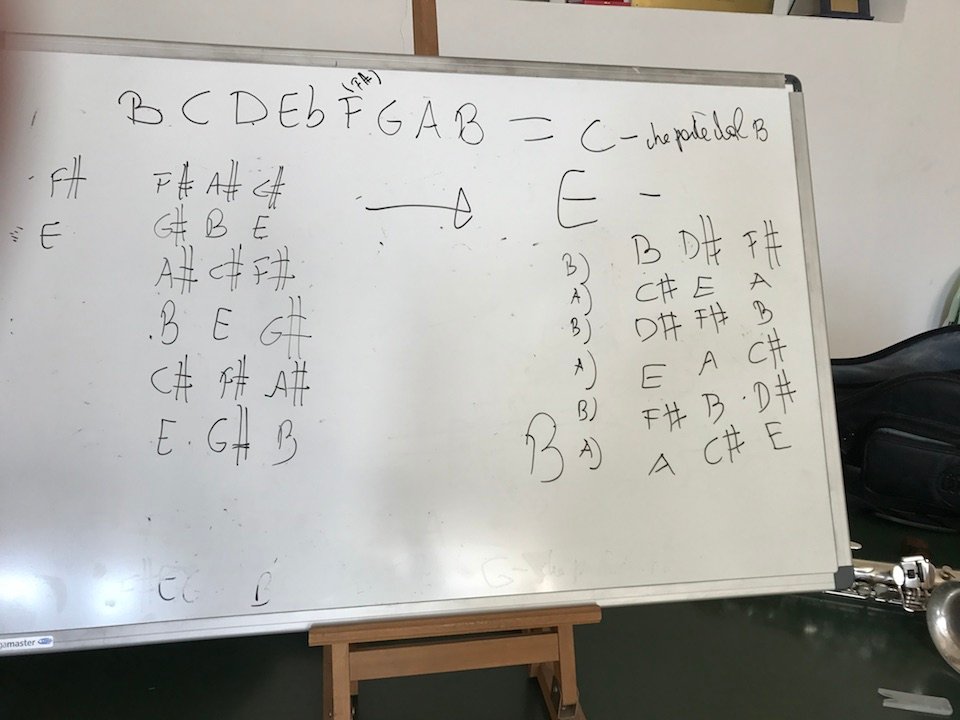 (FA)
B C D Eb F G A B = C - che parte dal B
F# F# A# C# → E -
E G# B E
A# C# F#
B E G#
C# F# A#
E G# B
B) B D# F#
A) C# E A
B) D# F# B
A) E A C#
B) F# B D#
B A) A C# E